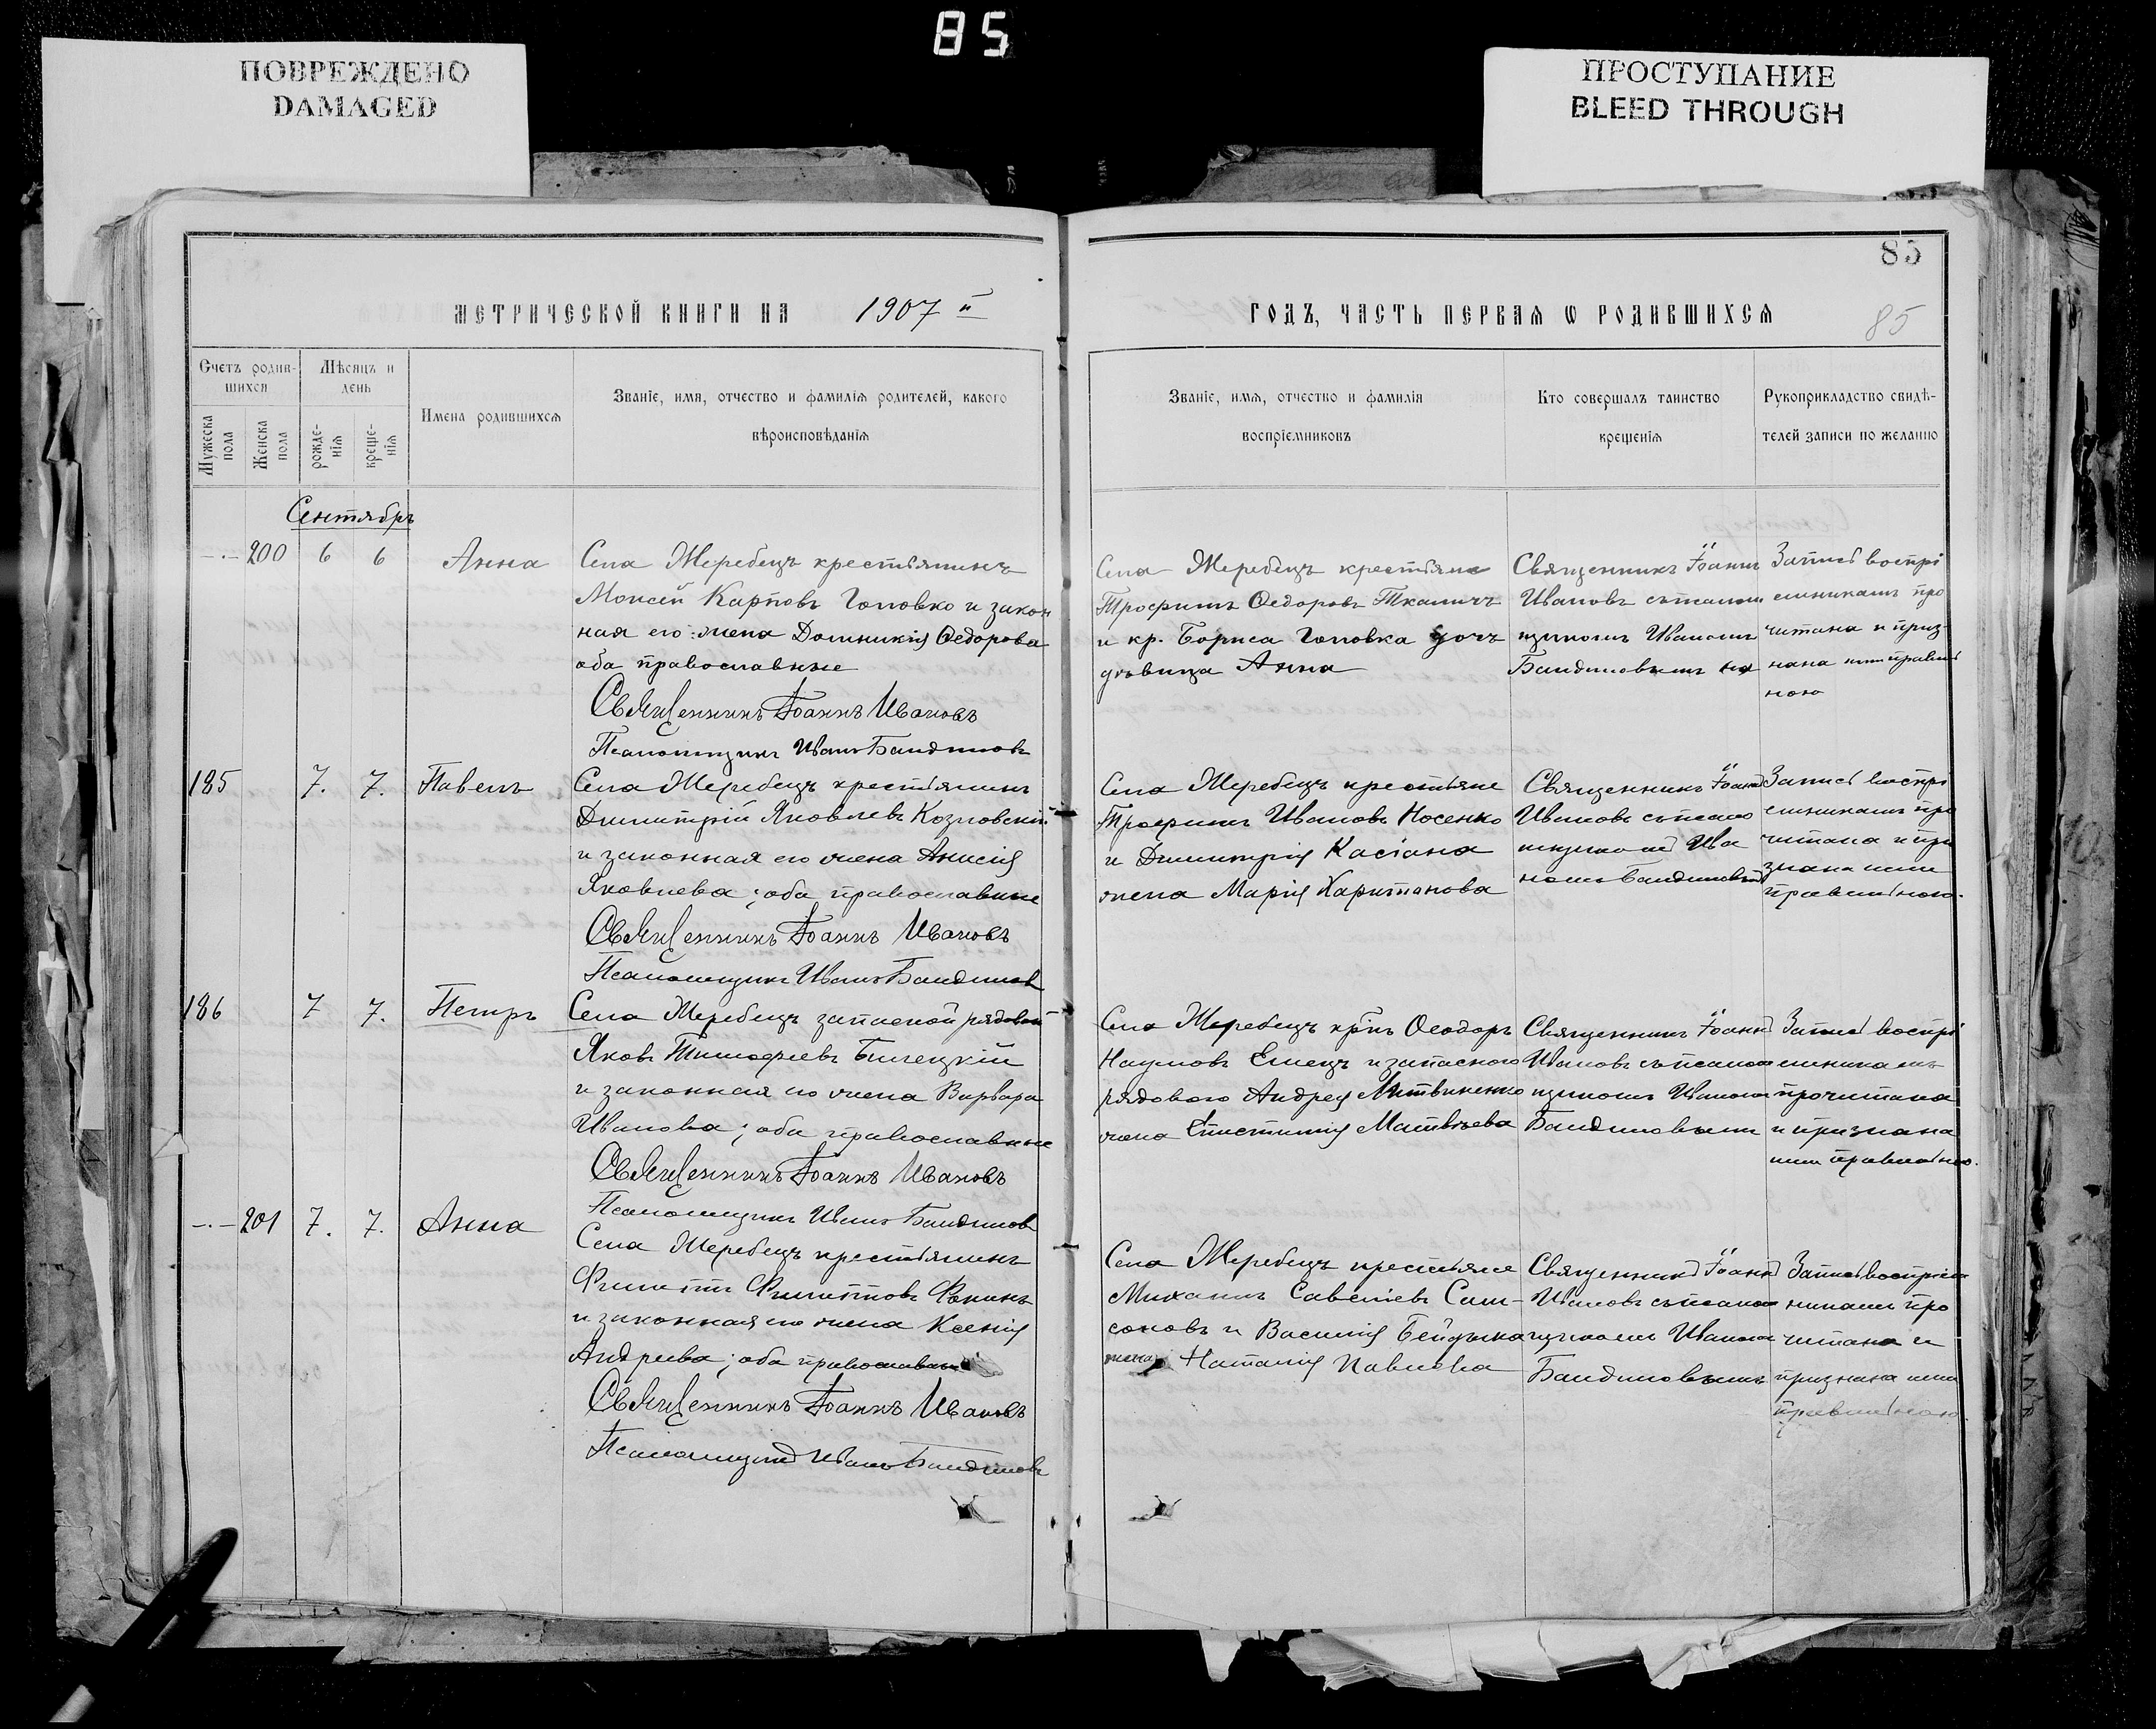 85
ПОВРЕЖДЕНО
DAMAGED
ПРОСТУПАНИЕ
BLEED THROUGH
85
МЕТРИЧЕСКОЙ КНИГИ НА 1907 й
ГОДЪ, ЧАСТЬ ПЕРВАѦ Ѡ РОДИВШИХСѦ
85
Счетъ родив-
шихся
Мѣсяцъ и
день
Мужеска
пола
Женска
пола
рожде-
нія
креще-
нія
Имена родившихся
Званіе, имя, отчество и фамилія родителей, какого
вѣроисповѣданія
Званіе, имя, отчество и фамилія
воспріемниковъ
Кто совершалъ таинство
крещенія
Рукоприкладство свидѣ-
телей записи по желанію
Сентябрь
200 6 6 Анна
Села Жеребецъ крестьянинъ
Моисей Карповъ Головко и закон
ная его жена Домникія Ѳедорова
оба православные
Священникъ Іоаннъ Ивановъ
Псаломщикъ Иванъ
Села Жеребецъ крестьяне
Трофимъ Ѳедоровъ Ткаличъ
и кр. Бориса Головка дочь
дѣвица Анна
Священникъ Іоаннъ
Ивановъ съ псалом
щикомъ Иваномъ
Запись воспрі
емникамъ про
читана и приз-
нана ими правиль
ною
185 7. 7. Павелъ
Села Жеребецъ крестьянинъ
Димитрій Яковлевъ Козловскій
и законная его жена Анисія
Яковлева; оба православные
Священникъ Іоаннъ Ивановъ
Псаломщикъ Иванъ
Села Жеребецъ крестьяне
Трофимъ Ивановъ Носенко
и Димитрія Касіана
жена Марія Харитонова
Священникъ Іоаннъ
Ивановъ съ псало
мщикомъ Ива
номъ
Запись воспрі
емникамъ про
читана и при
знана ими
правильною.
186 7 7. Петръ
Села Жеребецъ запасной рядовой
Яковъ Тимофеевъ Билецкій
и законная его жена Варвара
Иванова; оба православные
Священникъ Іоаннъ Ивановъ
Псаломщикъ Иванъ
Села Жеребецъ кр-нъ Ѳеодоръ
Наумовъ Емецъ и запасного
рядового Андрея Литвиненко
жена Епистимія Матвѣева
Священникъ Іоаннъ
Ивановъ съ псалом
щикомъ Иваномъ
Запись воспрі
емникамъ
прочитана
и признана
ими правильною.
201 7. 7. Анна
Села Жеребецъ крестьянинъ
Филиппъ Филипповъ Фокинъ
и законная его жена Ксенія
Андреева; оба православные
Священникъ Іоаннъ Ивановъ
Псаломщикъ Иванъ
Села Жеребецъ крестьяне
Михаилъ Савеліевъ Сам-
соновъ и Василія
жена Наталія Павлова
Священникъ Іоаннъ
Ивановъ съ псалом
щикомъ Иваномъ
Запись воспріем
никамъ про
читана и
признана ими
правильною.